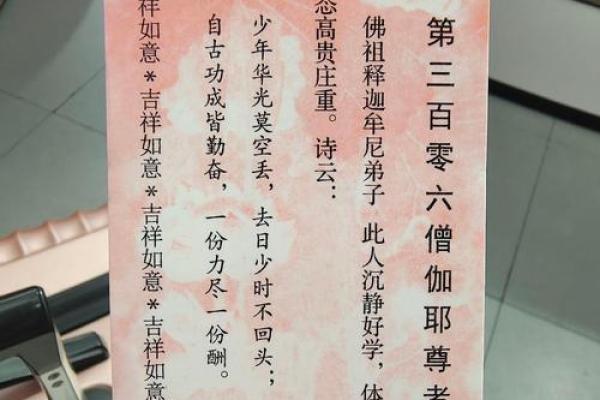 第三百零六僧伽耶尊者
佛祖释迦牟尼弟子 此人沉静好学，体
态高贵庄重。诗云：
少年华光莫空丢，去日少时不回头；
自古功成皆勤奋，一份力尽一份酬。
祥如意*吉祥如意*吉祥如意*吉祥如意